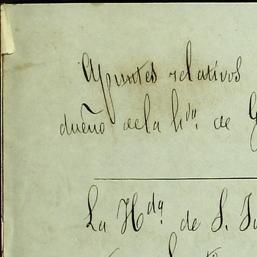 Apuntes relativos
dueño de la hda. de G
La Hda. de S. Ju